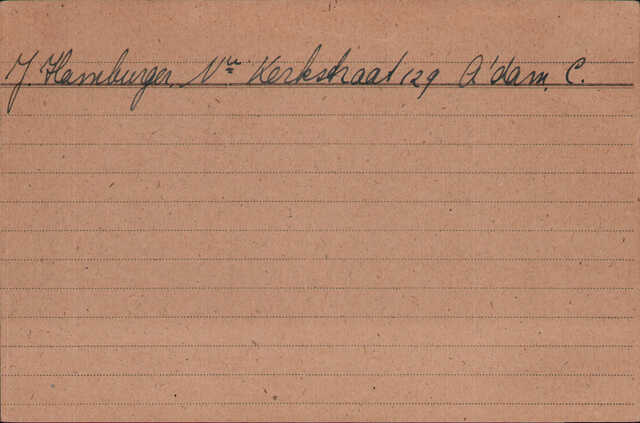 J. Hamburger, Nwe Kerkstraat 129 A'dam. C.